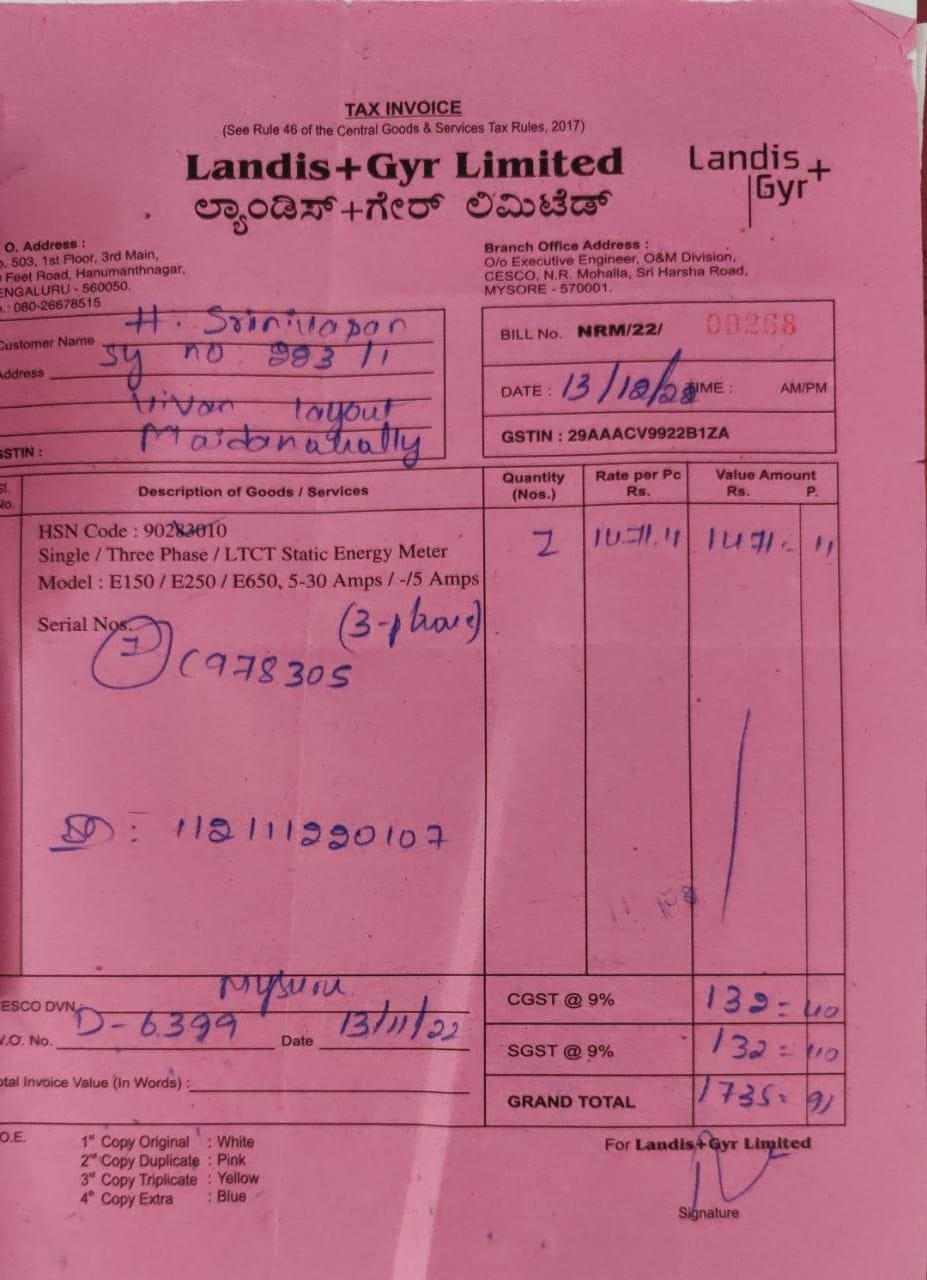 TAX INVOICE
(See Rule 46 of the Central Goods & Services Tax Rules, 2017)
Landis+Gyr Limited
ಲ್ಯಾಂಡಿಸ್+ಗೇರ್ ಲಿಮಿಟೆಡ್
Landis
Gyr+
O. Address :
503, 1st Floor, 3rd Main,
Feet Road, Hanumanthnagar,
ENGALURU - 560050.
.: 080-26678515
Branch Office Address :
O/o Executive Engineer, O&M Division,
CESCO, N.R. Mohalla, Sri Harsha Road,
MYSORE - 570001.
Customer Name H. Srinivasan
Address Sy no 993/1
Vivan layout
Maidanahally
GSTIN :
BILL No. NRM/22/ 09268
DATE : 13/12/22 TIME : AM/PM
GSTIN : 29AAACV9922B1ZA
Sl. No. Description of Goods / Services Quantity (Nos.) Rate per Pc Rs. Value Amount Rs. P.
HSN Code : 90283010
Single / Three Phase / LTCT Static Energy Meter 1 1471.11 1471 = 11
Model : E150 / E250 / E650, 5-30 Amps / -/5 Amps
Serial Nos. (3-phase)
1 C978305
ID : 112111220107
CESCO DVN. Mysuru
D-6399
W.O. No. Date 13/11/22
Total Invoice Value (In Words) :
CGST @ 9% 132 = 40
SGST @ 9% 132 = 40
GRAND TOTAL 1735 = 91
O.E.
1st Copy Original : White
2nd Copy Duplicate : Pink
3rd Copy Triplicate : Yellow
4th Copy Extra : Blue
For Landis+Gyr Limited
Signature